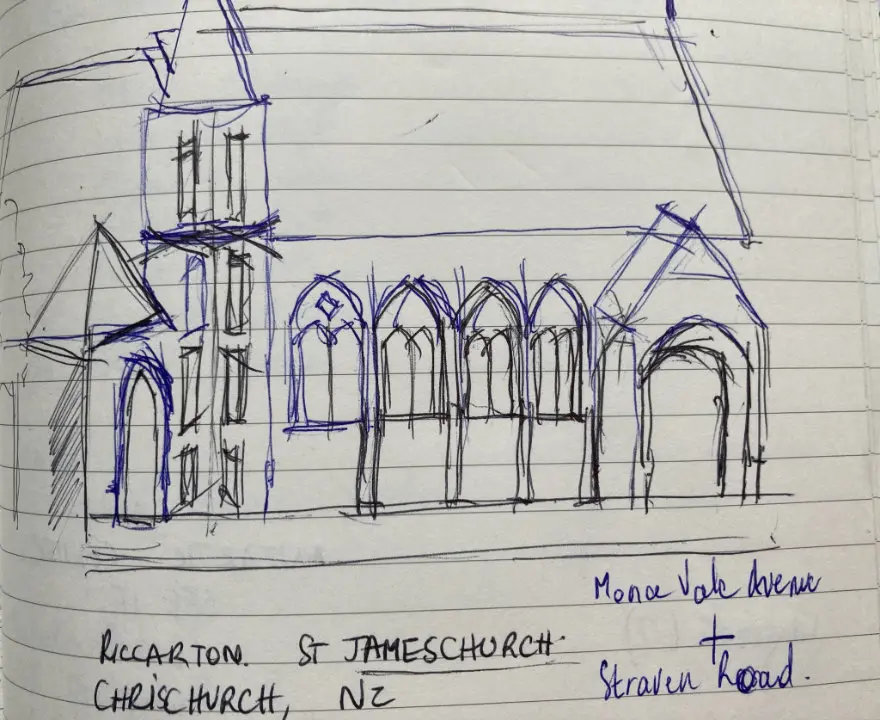 RICCARTON. ST JAMESCHURCH
CHRISCHURCH, NZ
Mona Vale Avenue
+
Straven Road.